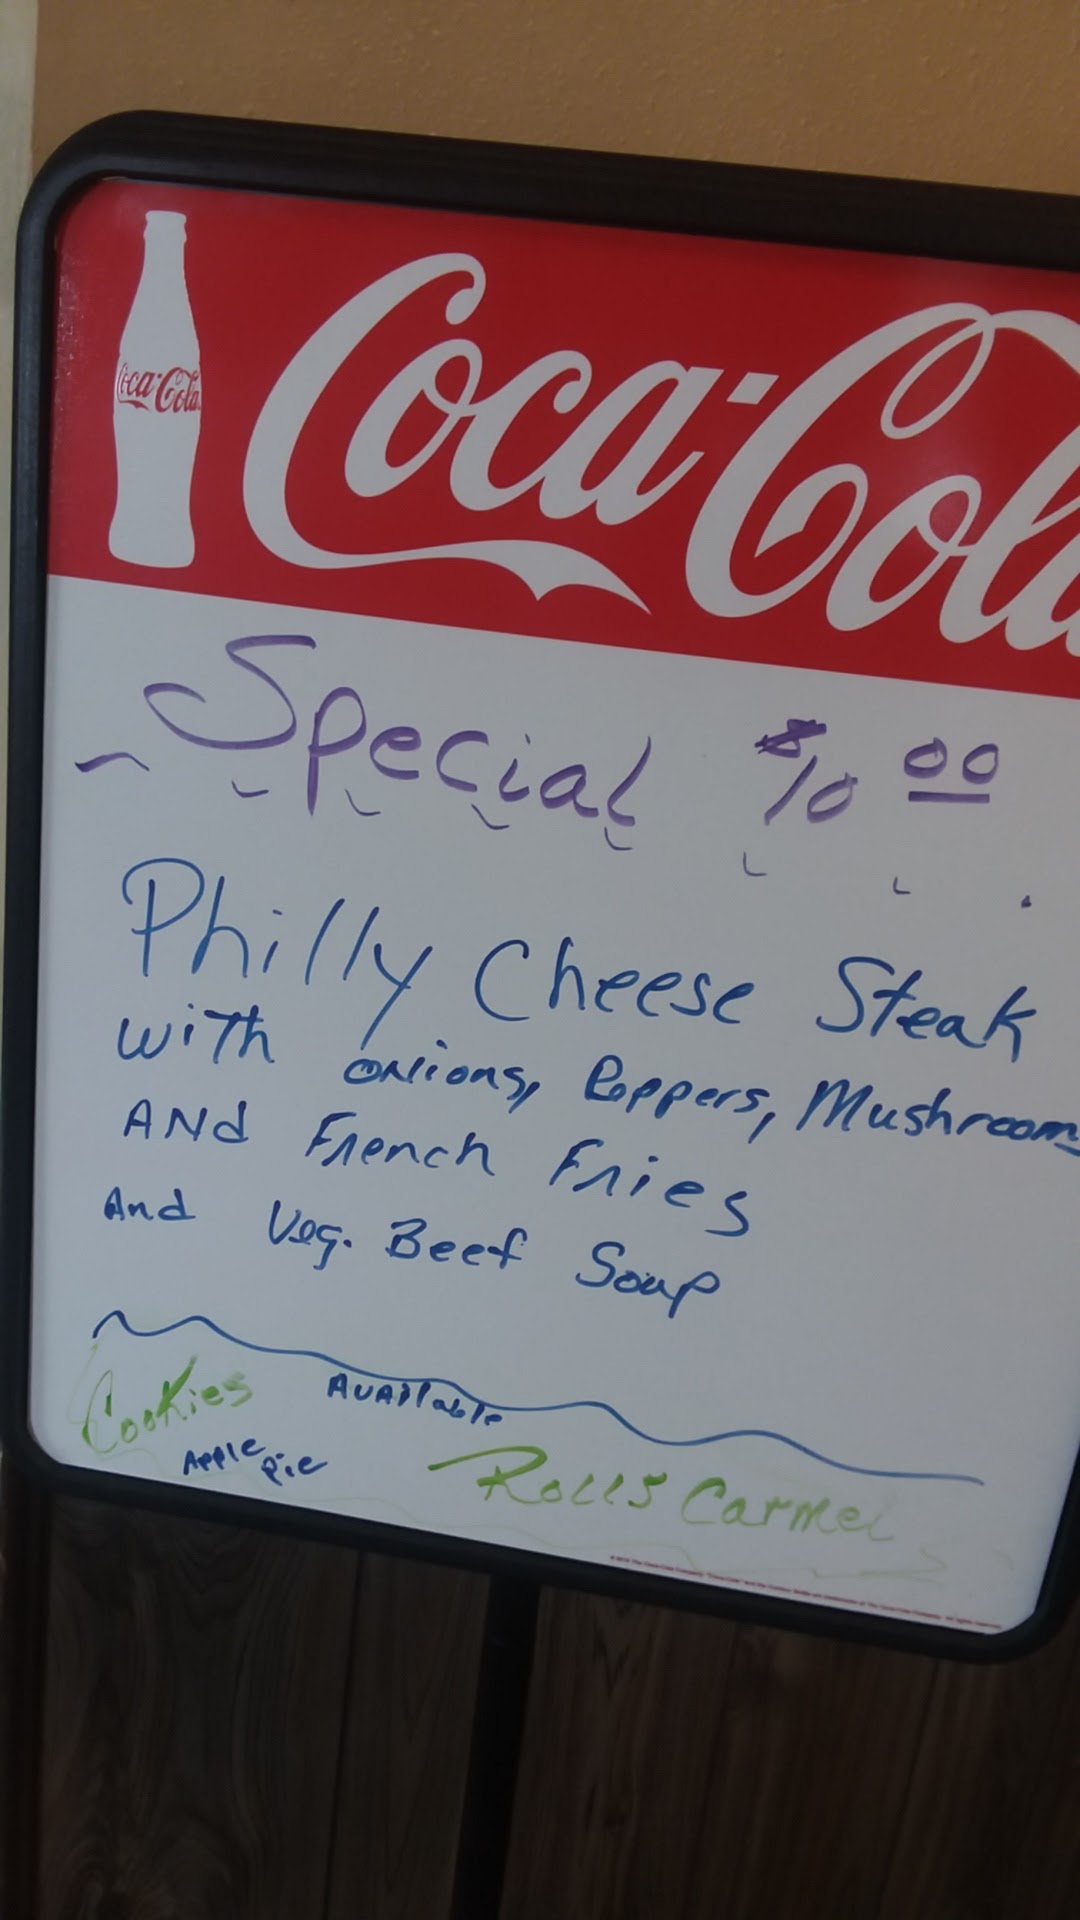 Coca-Cola
Coca-Cola
Special $10 00
Philly Cheese Steak
with onions, Peppers, Mushrooms
AND French Fries
And Veg. Beef Soup
Cookies Available
Apple Pie
Rolls Carmel